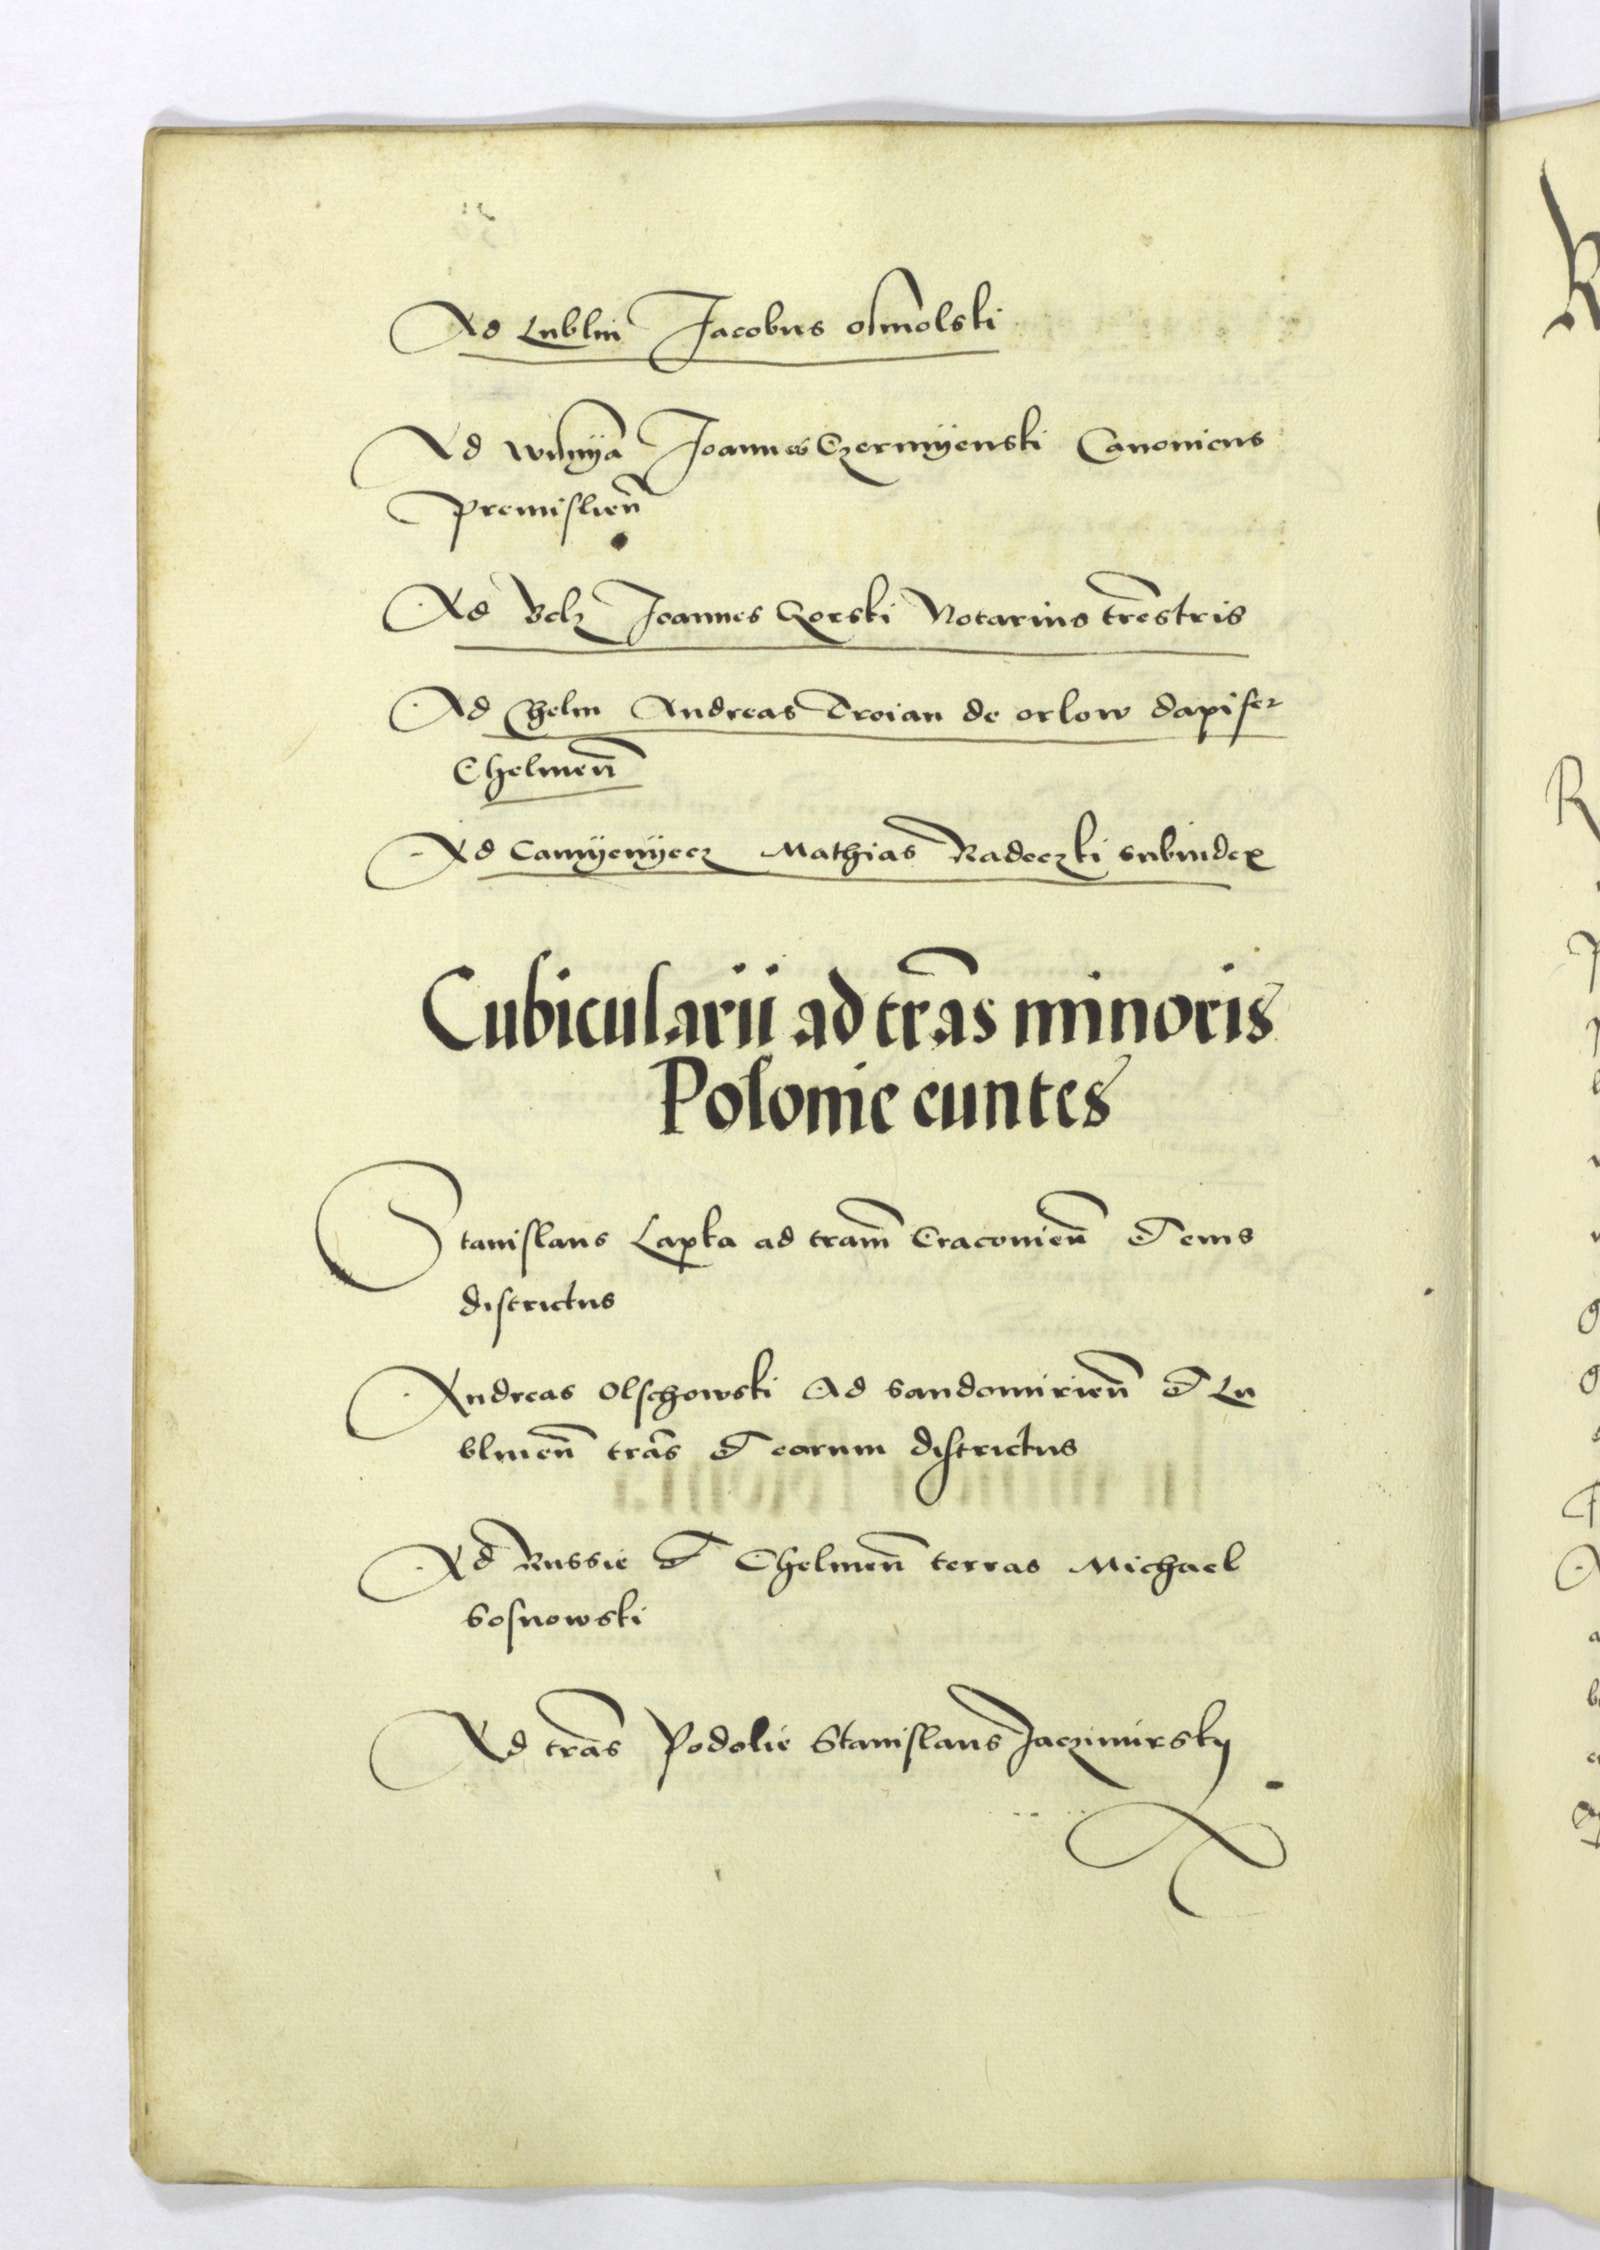 Ad Lublin Jacobus osmolski
Ad wisnya Joannes Czermyenski Canonicus
Premislien̄
Ad Belz Joannes Gorski Notarius tr̄estris
Ad Chelm Andreas Troian de orlow dapifer
Chelmen̄
Ad Camyenyecz Mathias Radeczki subiudex
Cubicularii ad tr̄as minoris
Polonie euntes
Stanislaus Lapka ad tr̄am Cracouien̄ et eius
districtus
Andreas Olschowski Ad Sandomirien̄ et Lu
blinen̄ tr̄as et earum districtus
Ad Russie et Chelmen̄ terras Michael
Sosnowski
Ad tr̄as Podolie Stanislaus Jaczimirsky